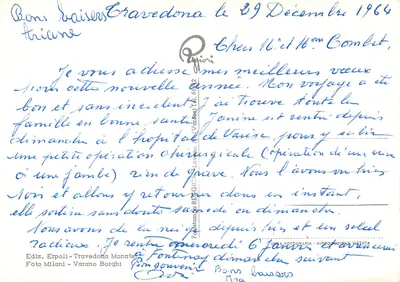 Bons baisers
Ariane
Travedona le 29 Décembre 1964
Chers Mr et Mme Combet,
Je vous adresse mes meilleurs vœux
pour cette nouvelle année. Mon voyage a été
bon et sans incident j'ai trouvé toute la
famille en bonne santé. Janine est rentré depuis
dimanche à l'hopital de Varèse, pour y subir
une petite opération chirurgicale (opération d'une veine
à une jambe) rien de grave. Nous l'avons vu hier
soir et allons y retourner dans un instant,
elle sortira sans doute samedi ou dimanche.
Nous avons de la neige depuis hier et un soleil
radieux. Je rentre mercredi 6 Janvier et
à Fontenay dimanche suivant
Bon souvenir
Bons baisers
Ediz. Erpoli - Travedona Monate
Foto Milani - Varano Borghi